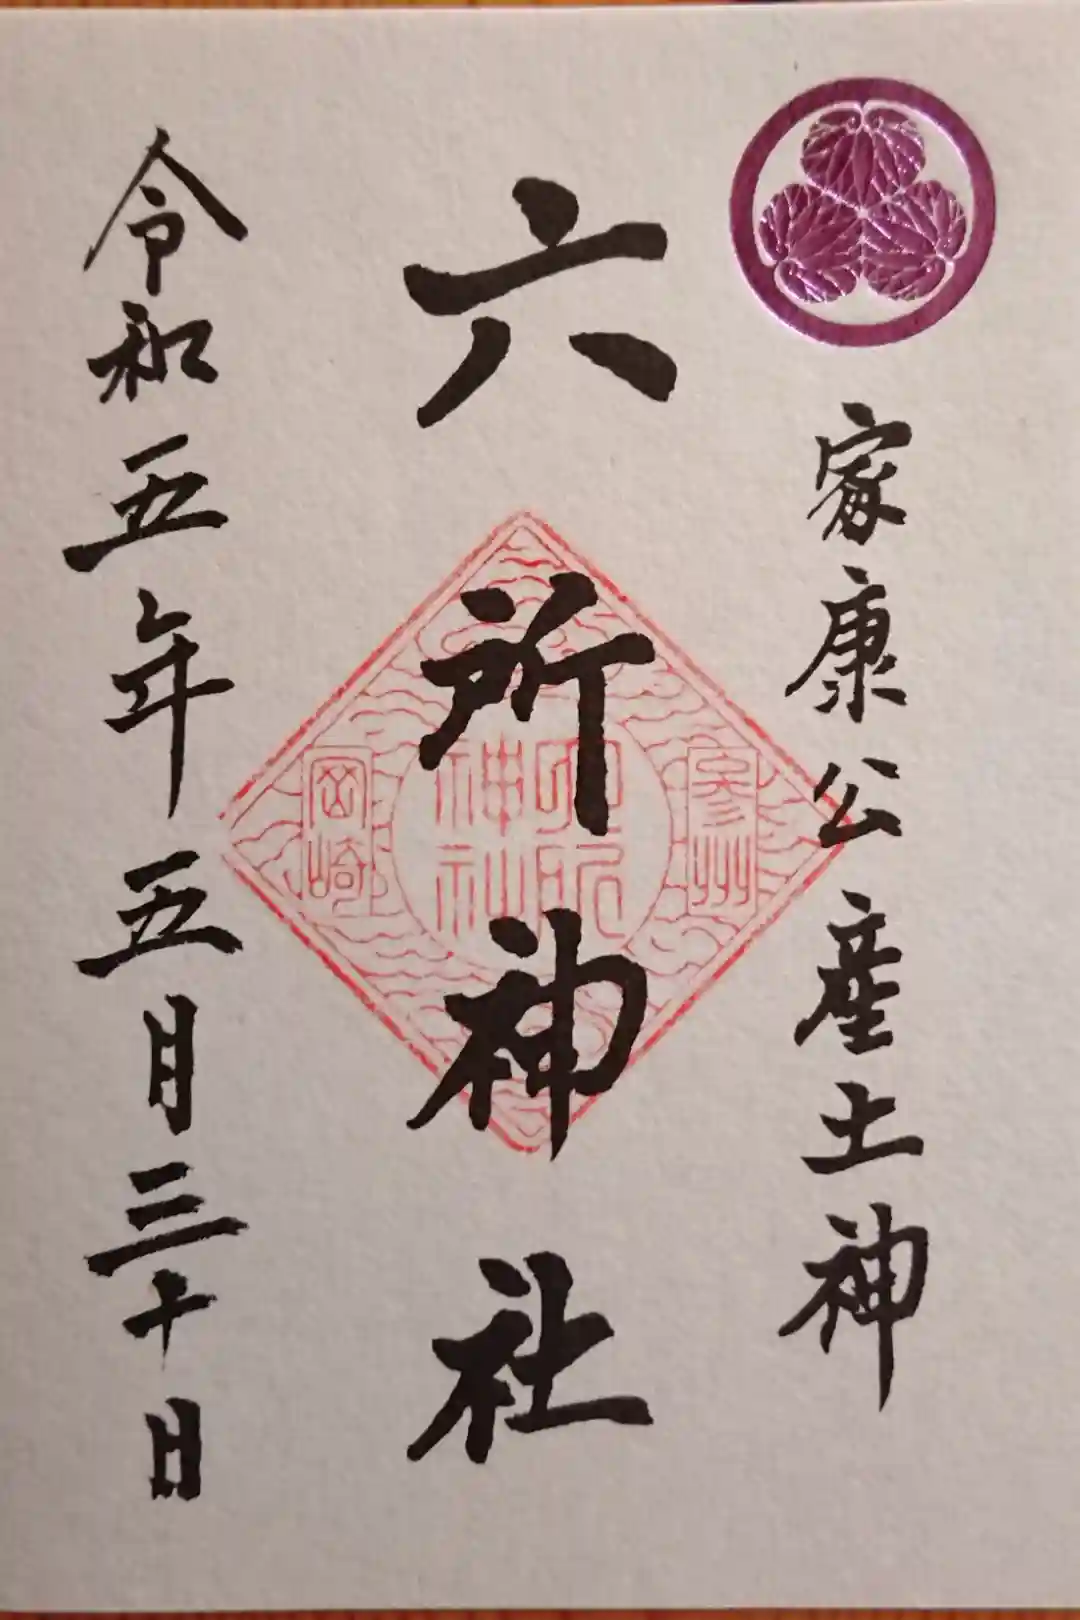 家康公産土神
六所神社
参州
六所
神社
岡崎
令和五年五月三十日